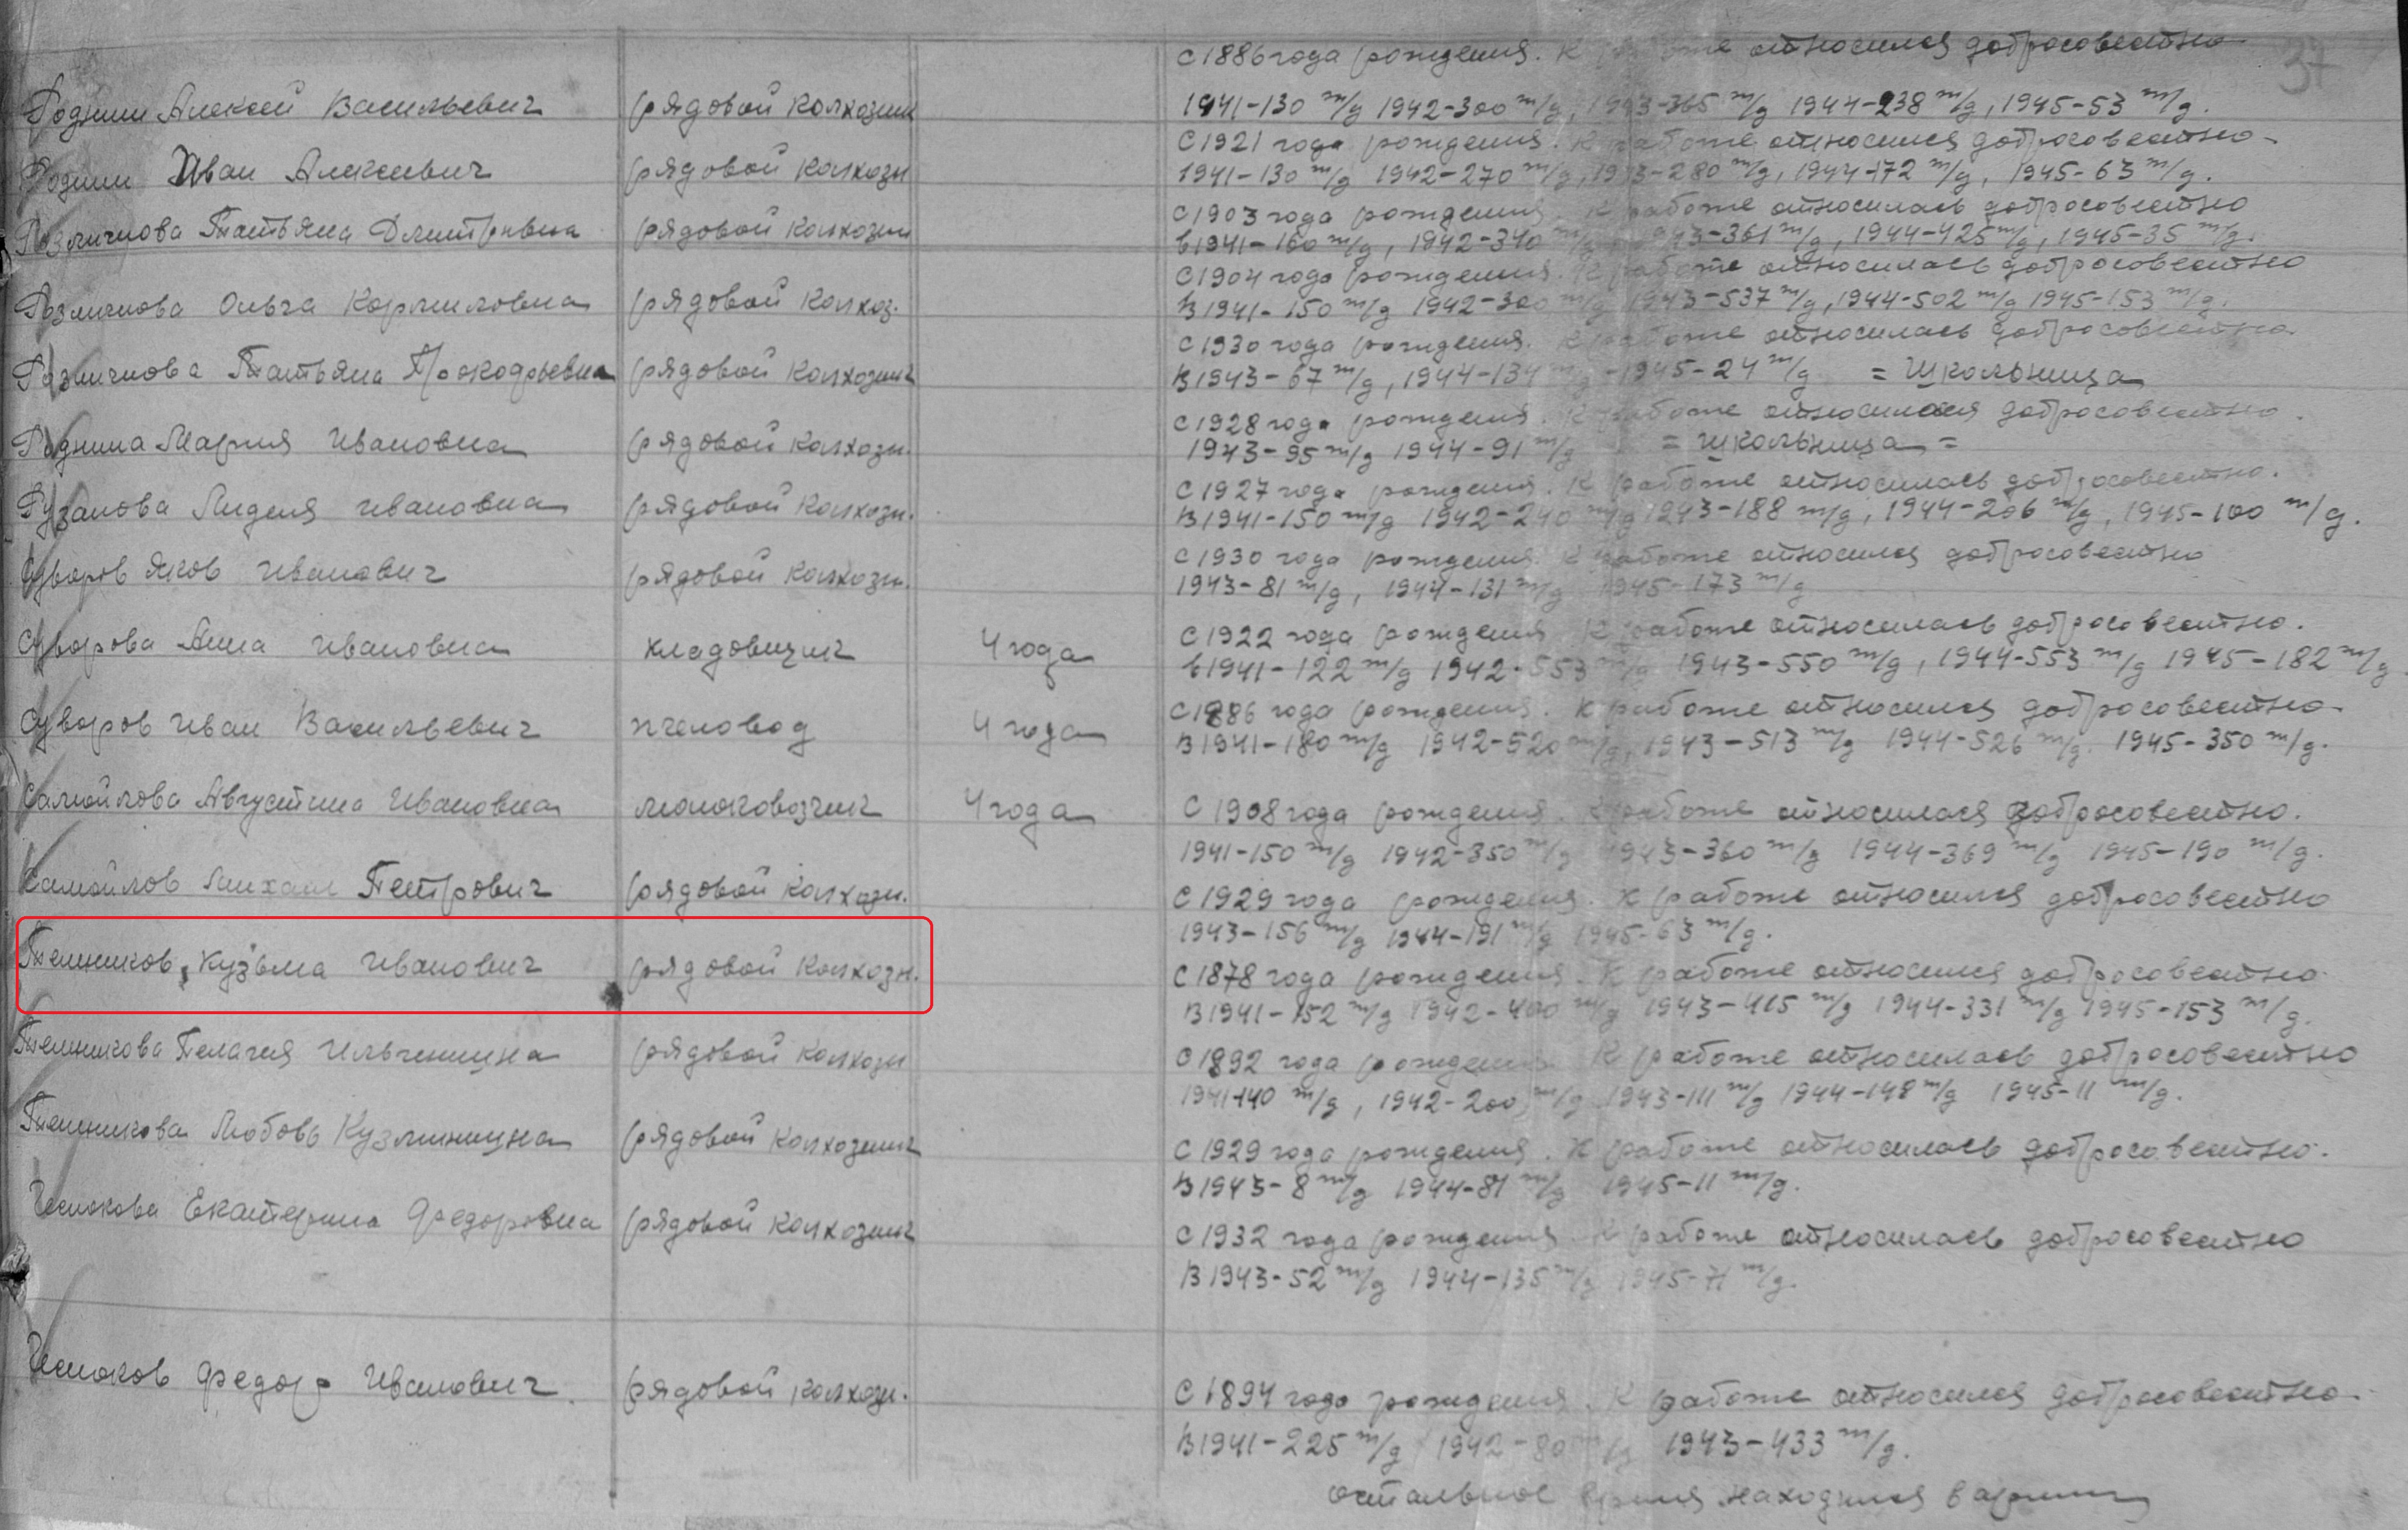 37
С 1886 года рождения. К работе относился добросовестно
Роднин Алексей Васильевич рядовой колхозник 1941-130 т/д 1942-300 т/д, 1943-365 т/д 1944-238 т/д, 1945-53 т/д.
С 1921 года рождения. К работе относился добросовестно
Роднин Иван Алексеевич рядовой колхозн 1941-130 т/д 1942-270 т/д, 1943-280 т/д, 1944-172 т/д, 1945-63 т/д.
С 1903 года рождения. К работе относилась добросовестно
Татьяна Дмитривна рядовой колхозн в 1941-160 т/д, 1942-340 т/д 1943-361 т/д, 1944-425 т/д, 1945-35 т/д.
С 1904 года рождения. К работе относилась добросовестно
Ольга Корниловна рядовой колхоз. В 1941-150 т/д 1942-300 т/д 1943-537 т/д, 1944-502 т/д 1945-153 т/д.
С 1930 года рождения. К работе относилась добросовестно.
Татьяна Прокофьевна рядовой колхозник В 1943-67 т/д, 1944-134 т/д -1945-24 т/д = Школьница
С 1928 года рождения. К работе относилася добросовестно.
Роднина Мария Ивановна рядовой колхозн. 1943-95 т/д 1944-91 т/д = школьница =
С 1927 года рождения. К работе относилась добросовестно.
Рузанова Лидия Ивановна рядовой колхозн. В 1941-150 т/д 1942-240 т/д 1943-188 т/д, 1944-206 т/д, 1945-100 т/д.
С 1930 года рождения. К работе относился добросовестно
Суворов Яков Иванович рядовой колхозн. 1943-81 т/д, 1944-131 т/д 1945-173 т/д
С 1922 года рождения К работе относилась добросовестно.
Суворова Анна Ивановна кладовщик 4 года в 1941-122 т/д 1942-553 т/д 1943-550 т/д, 1944-553 т/д 1945-182 т/д
С 1886 года рождения. К работе относился добросовестно
Суворов Иван Васильевич пчеловод 4 года В 1941-180 т/д 1942-520 т/д, 1943-513 т/д 1944-526 т/д. 1945-350 т/д.
Самойлова Августина Ивановна молоковозчик 4 года С 1908 года рождения. К работе относилася добросовестно.
1941-150 т/д 1942-350 т/д 1943-360 т/д 1944-369 т/д 1945-190 т/д.
Самойлов Михаил Петрович рядовой колхозн. С 1929 года рождения. К работе относился добросовестно
1943-156 т/д 1944-191 т/д 1945-63 т/д.
Телпиков, Кузьма Иванович рядовой колхозн. С 1878 года рождения. К работе относился добросовестно
В 1941-152 т/д 1942-400 т/д 1943-415 т/д 1944-331 т/д 1945-153 т/д.
Пелагия Ильинишна рядовой колхозн С 1892 года рождения К работе относилась добросовестно
1941-140 т/д, 1942-200 т/д 1943-111 т/д 1944-148 т/д 1945-11 т/д.
Любовь Кузминишна рядовой колхозник С 1929 года рождения. К работе относилась добросовестно.
В 1943-8 т/д 1944-81 т/д 1945-11 т/д.
Екатерина Федоровна рядовой колхозник С 1932 года рождения К работе относилась добросовестно
В 1943-52 т/д 1944-135 т/д 1945-71 т/д.
Федор Иванович рядовой колхозн. С 1894 года рождения. К работе относился добросовестно
В 1941-225 т/д 1942-80 т/д 1943-433 т/д.
остальное время находился в армии